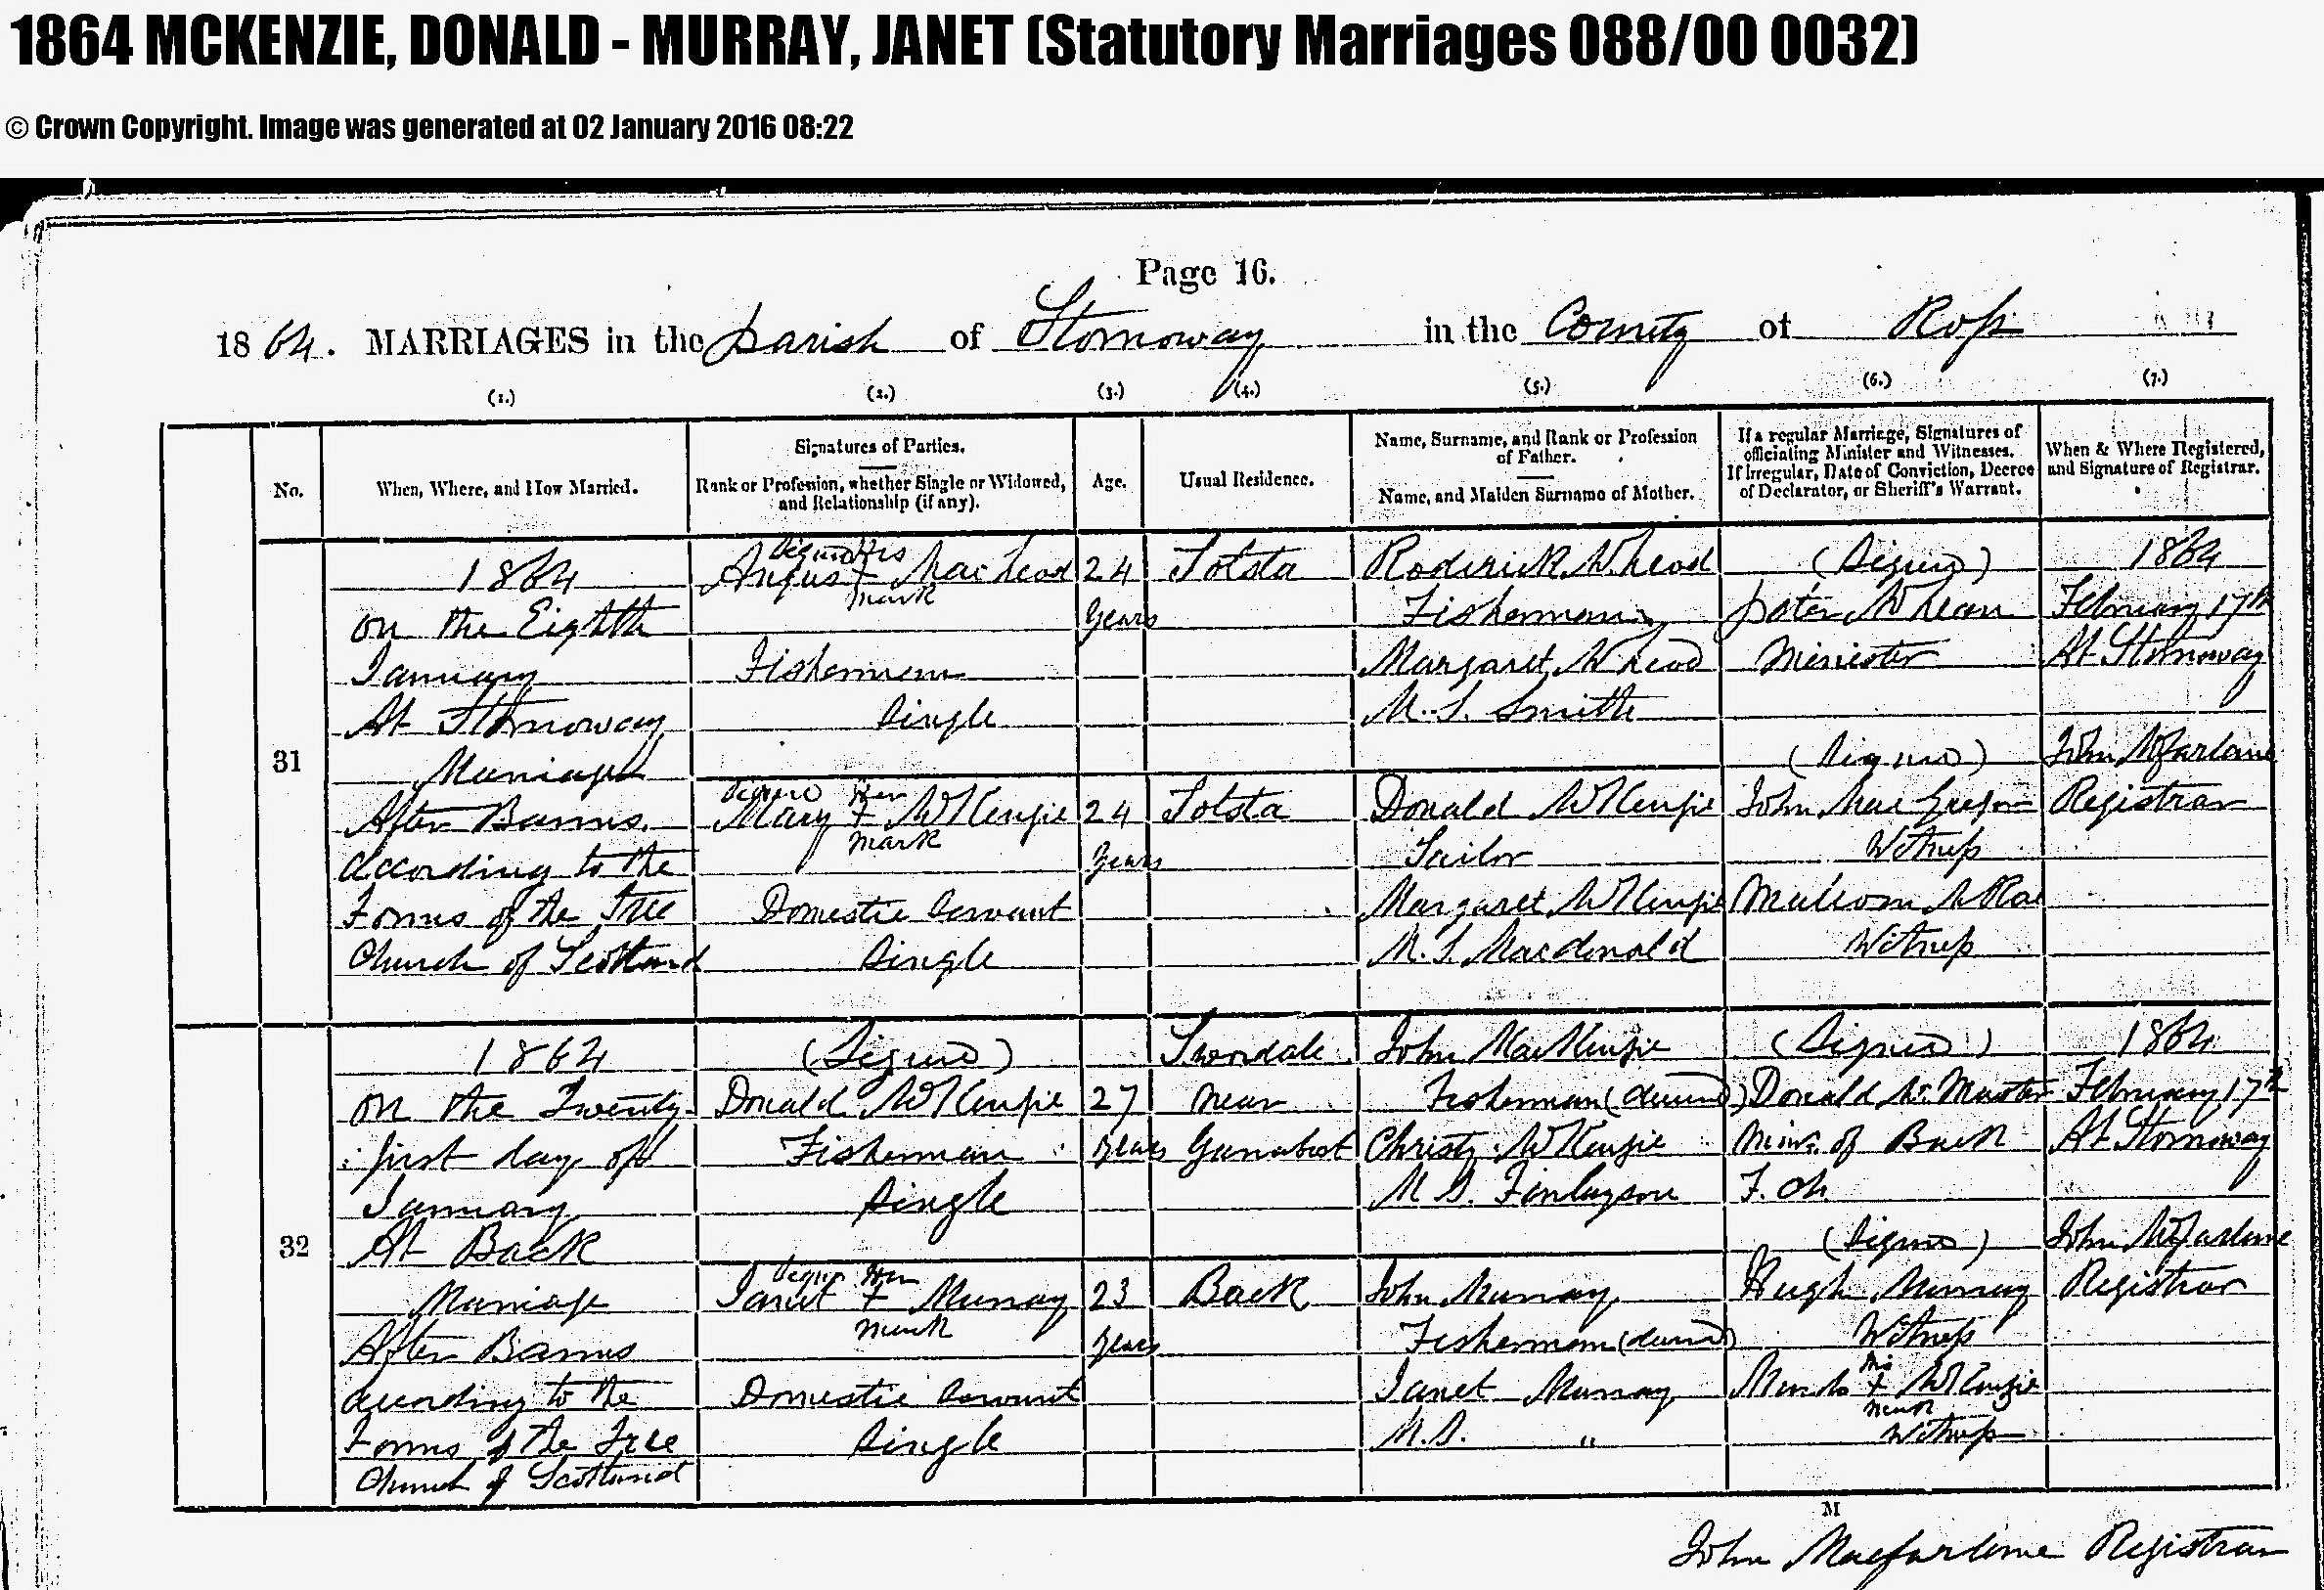 1864 MCKENZIE, DONALD - MURRAY, JANET (Statutory Marriages 088/00 0032)
© Crown Copyright. Image was generated at 02 January 2016 08:22
Page 16.
1864. MARRIAGES in the parish of Stornoway in the County of Ross
(1.) (2.) (3.) (4.) (5.) (6.) (7.)
No.
When, Where, and How Married.
Signatures of Parties.
Rank or Profession, whether Single or Widowed,
and Relationship (if any).
Age.
Usual Residence.
Name, Surname, and Rank or Profession
of Father.
Name, and Maiden Surname of Mother.
If a regular Marriage, Signatures of
officiating Minister and Witnesses.
If Irregular, Date of Conviction, Decree
of Declarator, or Sheriff's Warrant.
When & Where Registered,
and Signature of Registrar.
31
1864
on the Eighth
January
At Stornoway
Marriage
After Banns
according to the
Forms of the Free
Church of Scotland
Signed His
Angus + MacLeod
mark
Fisherman
Single
Signed Her
Mary + McKenzie
mark
Domestic Servant
Single
24
years
24
years
Tolsta
Tolsta
Roderick McLeod
Fisherman
Margaret McLeod
M.S. Smith
Donald McKenzie
Tailor
Margaret McKenzie
M.S. Macdonald
(Signed)
Peter McLean
Minister
(Signed)
John MacGregor
Witness
Malcom McRae
Witness
1864
February 17th
At Stornoway
John McFarlane
Registrar
32
1864
on the Twenty
first day of
January
At Back
Marriage
After Banns
according to the
Forms of the Free
Church of Scotland
(Signed)
Donald McKenzie
Fisherman
Single
Signed Her
Janet + Murray
mark
Domestic Servant
Single
27
years
23
years
Swordale
near
Garrabost
Back
John MacKenzie
Fisherman (deceased)
Christy McKenzie
M.S. Finlayson
John Murray
Fisherman (deceased)
Janet Murray
M.S. "
(Signed)
Donald McMaster
Minr. of Back
F. Ch.
(Signed)
Hugh Murray
Witness
his
Murdo + McKenzie
mark
Witness
1864
February 17th
At Stornoway
John McFarlane
Registrar
M
John Macfarlane Registrar